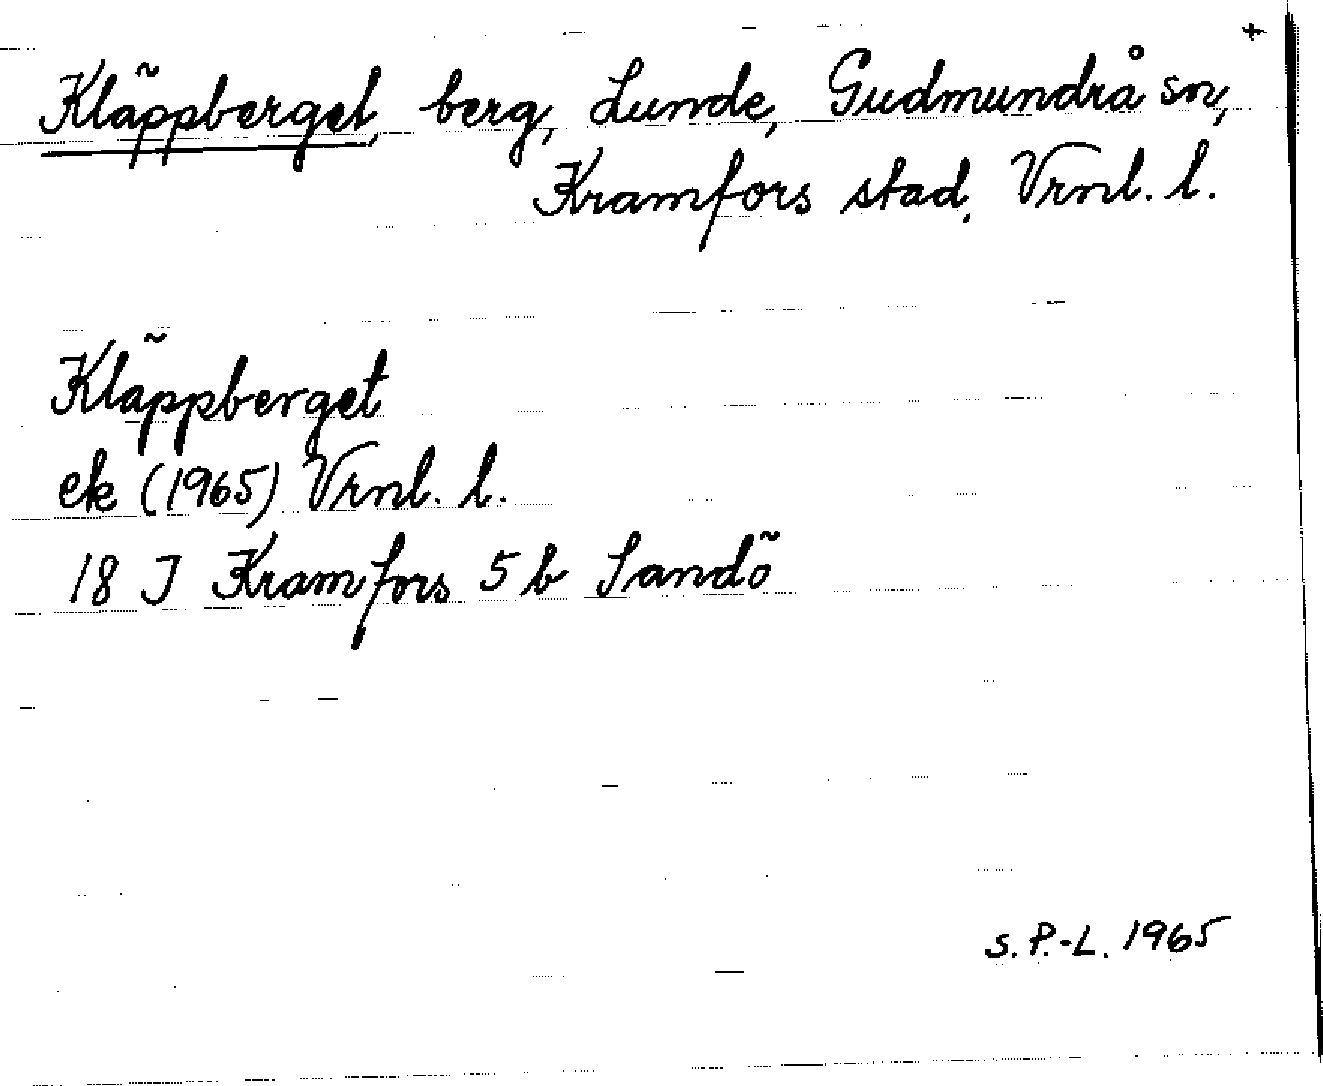 +
Kläppberget, berg, Lunde, Gudmundrå sn,
Kramfors stad, Vrnl. l.
Kläppberget
ek (1965) Vrnl. l.
18 J Kramfors 5 b Sandö
S. P.-L. 1965